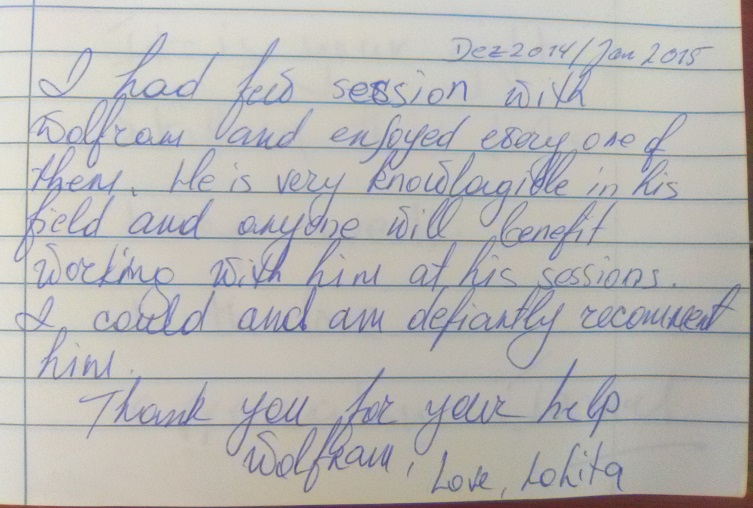 Dez 2014/Jan 2015
I had few session with
Wolfram and enjoyed every one of
them. He is very knowlagible in his
field and anyone will benefit
working with him at his sessions.
I could and am defiantly recomment
him.
Thank you for your help
Wolfram, Love, Lohita